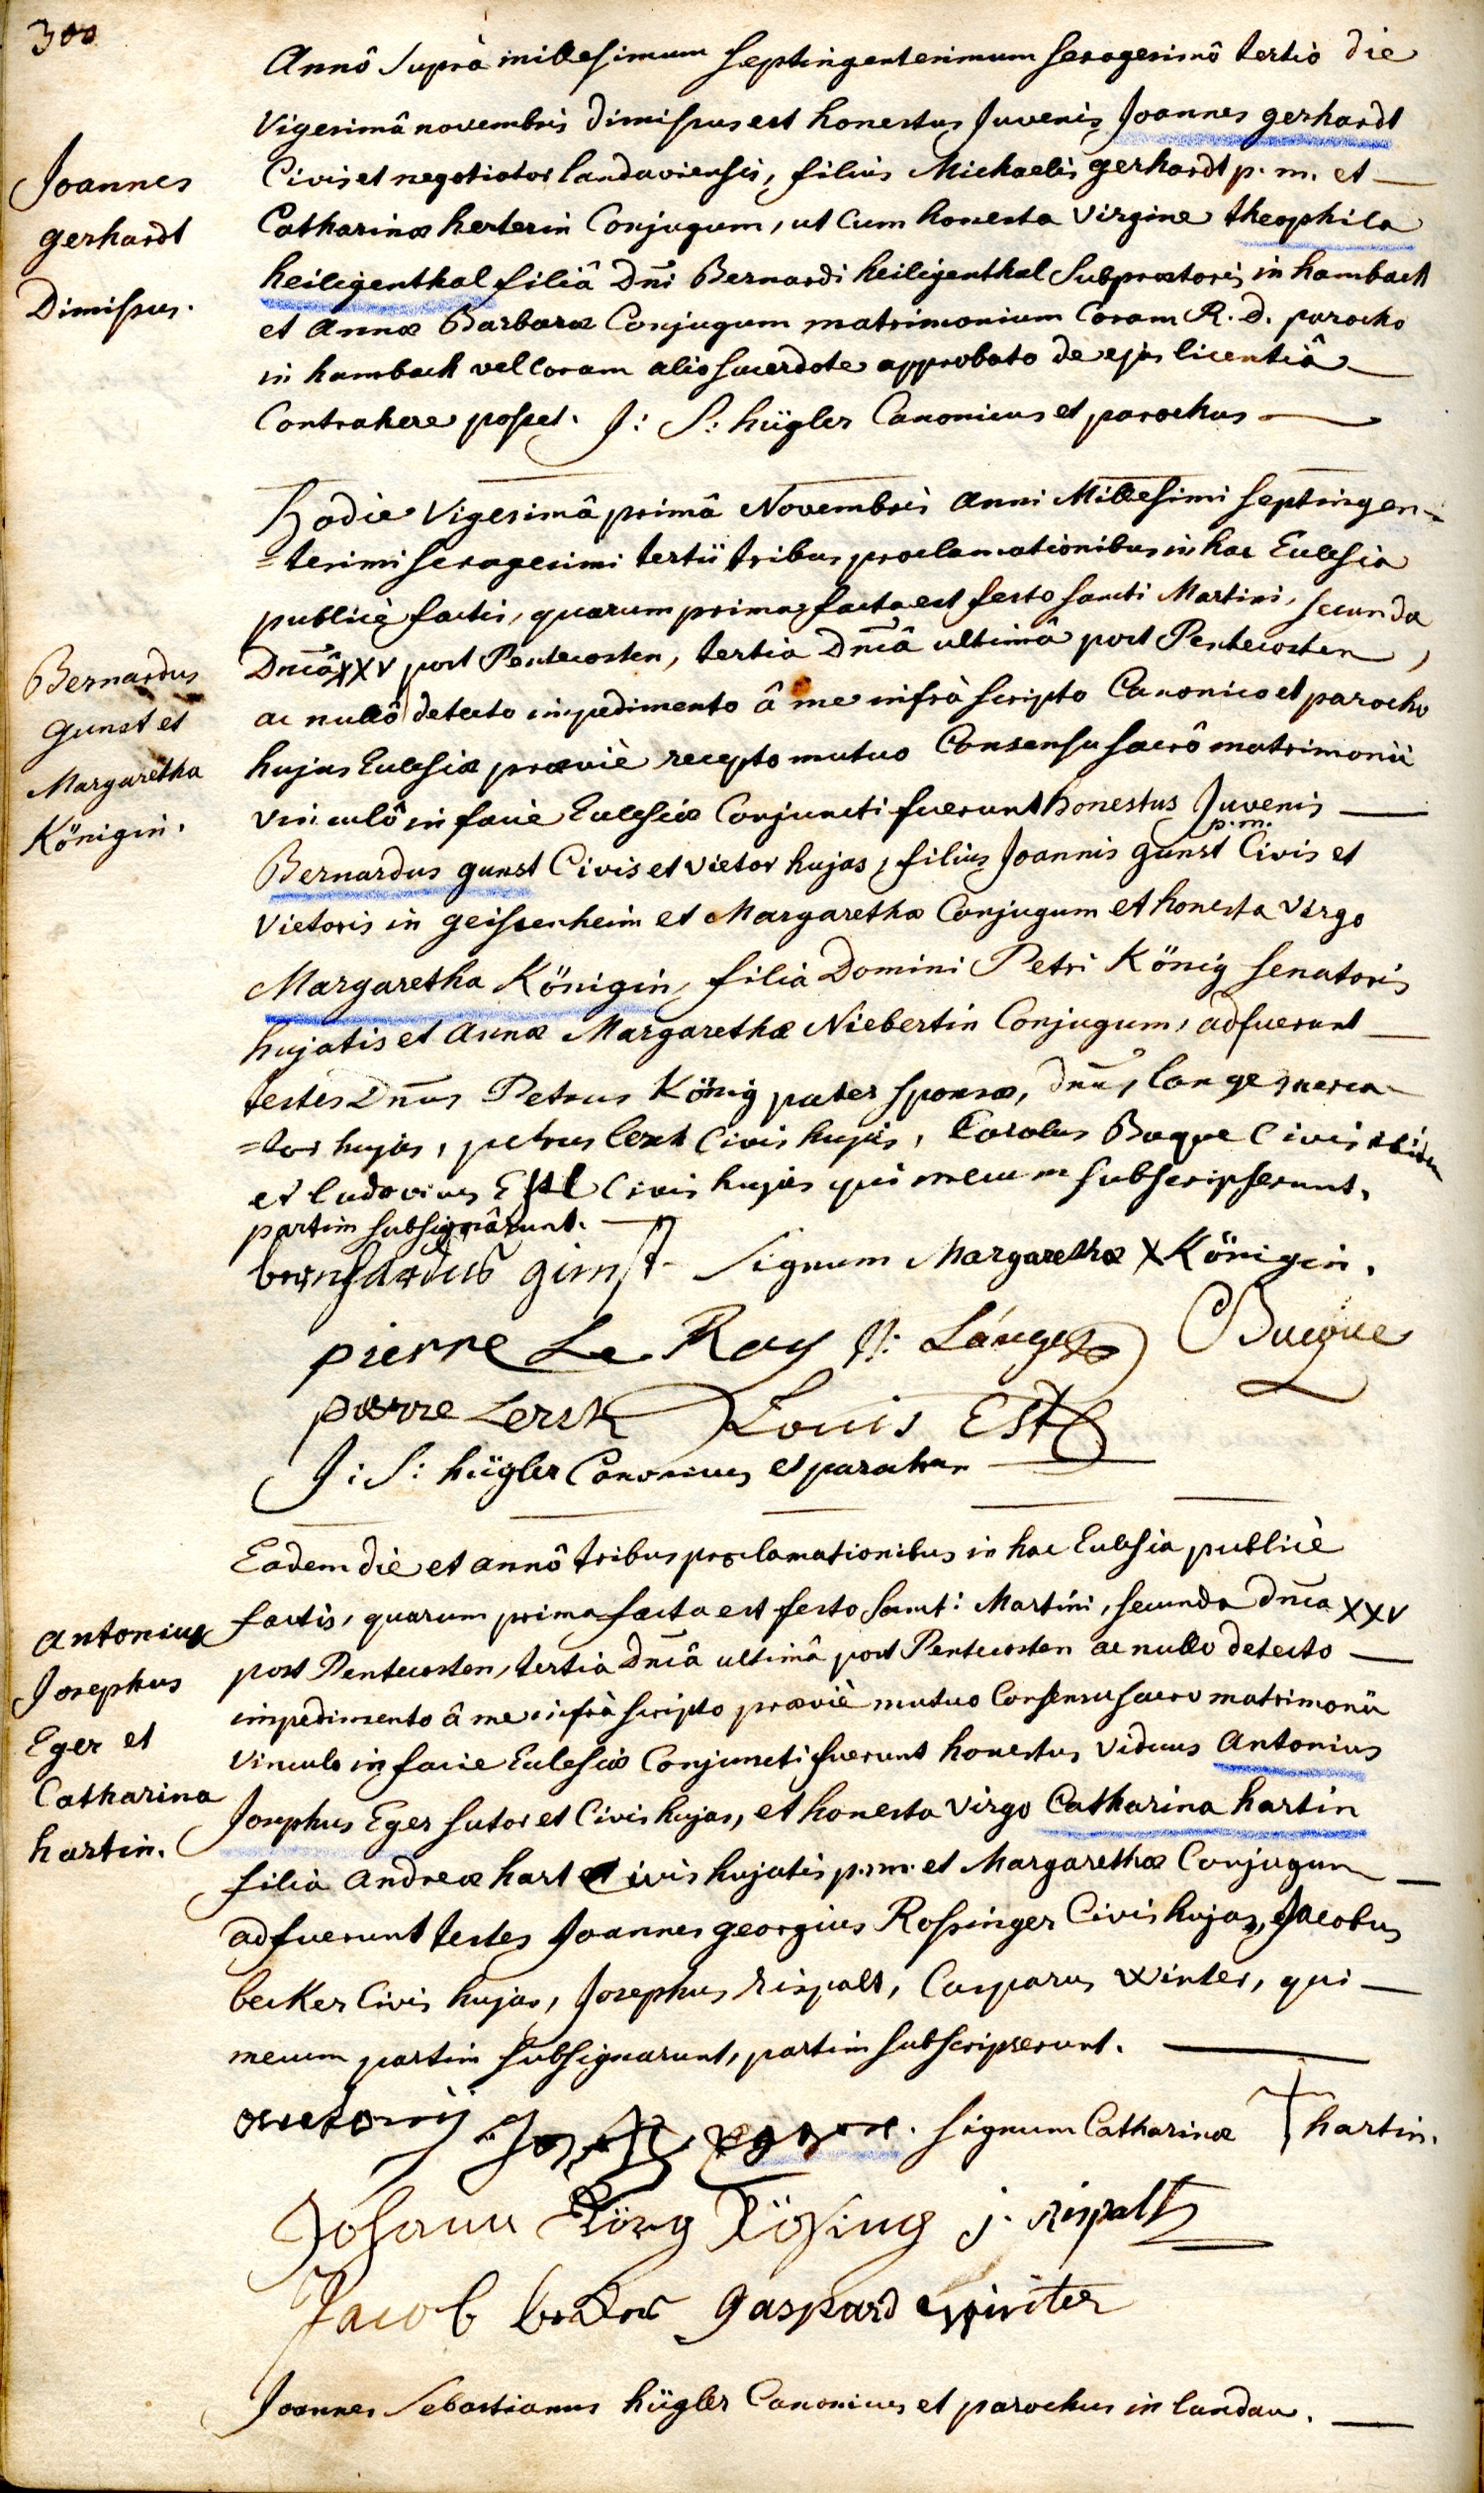 300
Annô Suprà millesimum Septingentesimum sexagesimô tertiò die
Vigesimâ novembris dimissus est honestus Juvenis Joannes gerhardt
Civis et negotiator landaviensis, filius Michaelis gerhardt p. m. et
Catharinæ herterin Conjugum, ut cum honesta virgine theophila
heiligenthal filiâ Dni Bernardi heiligenthal Subprætoris in hambach
et Annæ Barbaræ Conjugum matrimonium Coram R. D. parocho
in hambach vel coram alio sacerdote approbato de ejus licentiâ
Contrahere posset. J: S: hügler Canonicus et parochus
Joannes
gerhardt
Dimissus.
Hodie Vigesimâ primâ Novembris anni Millesimi septingen-
=tesimi sexagesimi tertii tribus proclamationibus in hac Ecclesia
publicè factis, quarum prima facta est festo sancti Martini, secunda
Dnicâ XXV post Pentecosten, tertia Dnicâ ultimâ post Pentecosten,
ac nullô detecto impedimento â me infrà scripto Canonico et parocho
hujus Ecclesiæ præviè recepto mutuo Consensu sacrô matrimonii
vinculô in facie Ecclesiæ Conjuncti fuerunt honestus Juvenis
p. m.
Bernardus gunst Civis et vietor hujas, filius Joannis gunst Civis et
Vietoris in geissenheim et Margarethæ Conjugum et honesta virgo
Margaretha Königin, filia Domini Petri König senatoris
hujatis et Annæ Margarethæ Niebertin Conjugum, adfuerunt
testes Dnus Petrus König pater sponsæ, dnus lange merca-
=tor hujas, petrus lersh Civis hujas, Carolus Buque Civis ibidem
et ludovicus Estel Civis hujas qui mecum subscripserunt,
partim subsignârunt.
Bernardus
gunst et
Margaretha
Königin.
bernhardus günst Signum Margarethæ X Königin.
pierre Le Roy J: Lánge Buque
pierre Lersh Louis Estel
J: S: hügler Canonicus et parochus
Eadem die et annô tribus proclamationibus in hac Ecclesia publicè
factis, quarum prima facta est festo Sancti: Martini, secunda dnica XXV
post Pentecosten, tertia Dnicâ ultimâ post Pentecosten ac nullo detecto
impedimento â me infrà scripto præviè mutuo Consensu sacro matrimonii
Vinculo in facie Ecclesiæ Conjuncti fuerunt honestus viduus Antonius
Josephus Eger sutor et Civis hujas, et honesta virgo Catharina hartin
filia Andreæ hart Civis hujatis p. m. et Margarethæ Conjugum
adfuerunt testes Joannes georgius Rossinger Civis hujas, Jacobus
becker Civis hujas, Josephus rispalt, Casparus winter, qui
mecum partim subsignarunt, partim subscripserunt.
Antonius
Josephus
Eger et
Catharina
hartin.
Signum Catharinæ † hartin.
Johann Görg Rösing j. rispalt
Jacob becker gaspard winter
Joannes Sebastianus hügler Canonicus et parochus in landau.